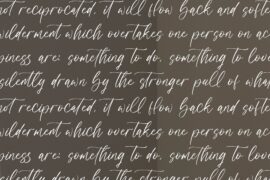 not reciprocated, it will flow back and softe
wilderment which overtakes one person on ac
piness are: something to do, something to lov
silently drawn by the stronger pull of wha
not reciprocated, it will flow back and softe
wilderment which overtakes one person on ac
piness are: something to do, something to lov
silently drawn by the stronger pull of wha